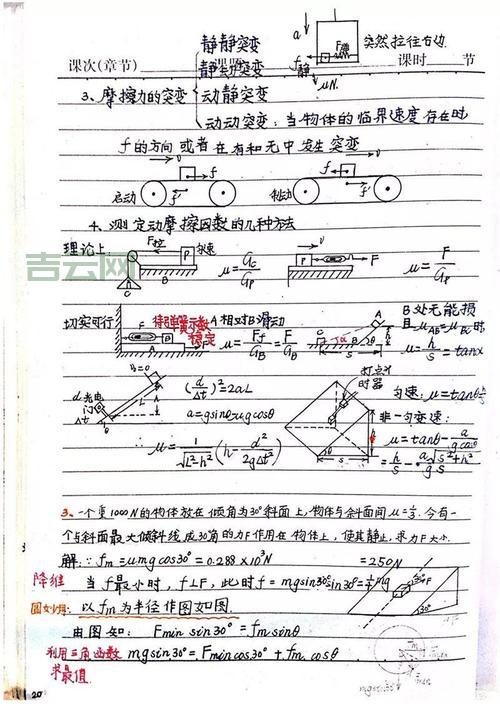 静静突变
a
突然拉往右边
课次(章节) 课题 静动突变 f静 课时 节
μN
3、摩擦力的突变 动静突变
动动突变：当物体的临界速度存在时
f的方向或者在有和无中发生突变
启动 制动
4、测定动摩擦因数的几种方法
理论上: F拉 P 匀速 μ=G_C/G_P P F μ=F/G_P
B
C
吉云网
切实可行 待弹簧示数稳定 A相对B滑动 μ=F_f/G_B=F/G_B B处无能损
且μ_AB=μ_BC时
μ=h/s=tanα
d光电门Δt
(d/Δt)²=2aL
a=gsinθ-μgcosθ
μ=1/√(L²-h²)(h-d²/(2gΔt²))
打点计时器
匀速：μ=tanθ
非一匀变速：
μ=tanθ-a/(gcosθ)
=h/s-a√(s²+h²)/(gs)
3、一个重1000N的物体放在倾角为30°斜面上,物体与斜面间μ=1/3.今有一
个与斜面最大倾斜线成30角的力F作用在物体上,使其静止,求力F大小.
解:∵fm=μmgcos30°=0.288×10³N =250N
降维 当f最小时,f⊥F,此时f=mgsin30°sin30°=¼mg
以fm为半径作图如图.
由图知: Fmin sin30°=fm sinθ
利用三角函数 mgsin30°=Fmin cos30°+fm cosθ
求最值
mgsin30°
20